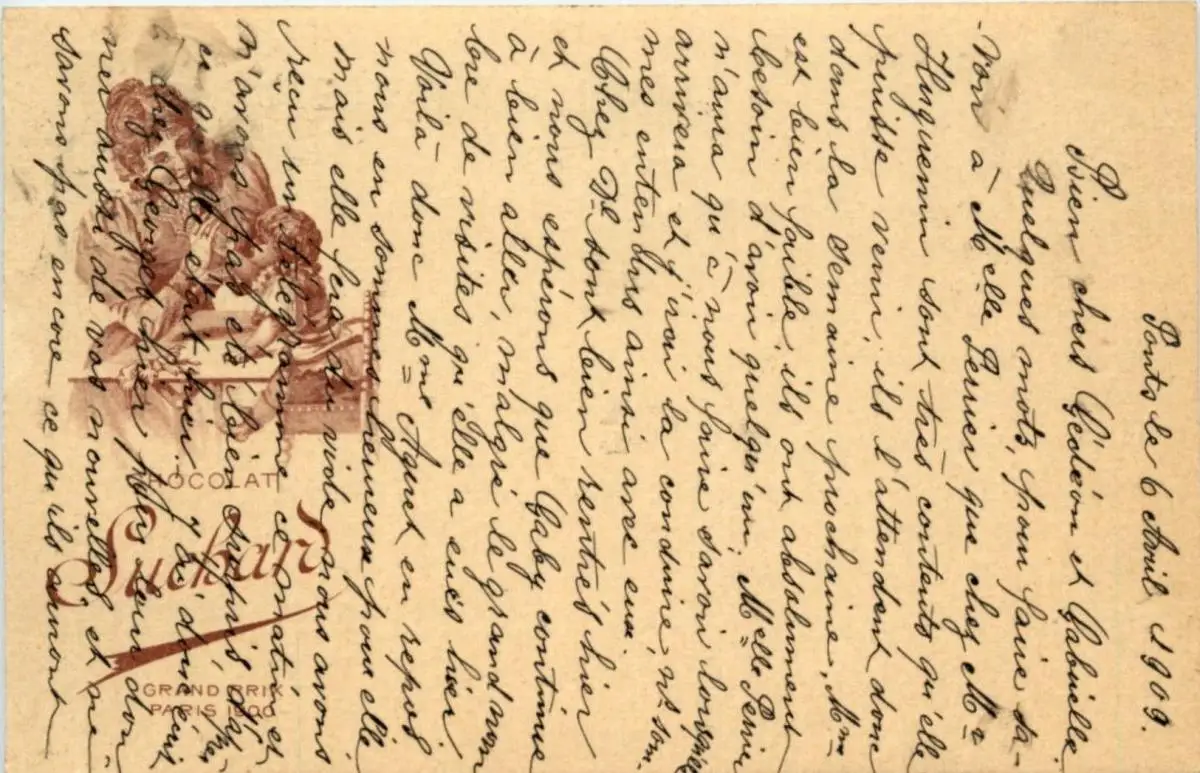 Ponts le 6 Avril 1909.
Bien chers Gédéon et Gabrielle.
Quelques mots, pour faire sa-
voir à Melle Perrier que chez Mr
Huguenin sont très contents qu'elle
puisse venir, ils l'attendent donc
dans la semaine prochaine, Mme
est bien faible, ils ont absolument
besoin d'avoir quelqu'un. Melle Perrier
n'aura qu'à nous faire savoir lorsqu'elle
arrivera et j'irai la conduire, ns som-
mes entendus ainsi avec eux.
Chez Dl sont bien rentrés hier
et nous espérons que Gaby continue
à bien aller, malgré le grand nom
bre de visites qu'elle a eues hier
Voilà donc Mme Aguet en repos
nous en sommes heureux pour elle
mais elle fera du vide, nous avons
reçu un télégramme ce matin et
n'avons pas été bien surpris
ce qu'elle était hier. J'ai écrit
chez Georges hier pour leur don
ner aussi de vos nouvelles, et ne
savons pas encore ce qu'ils auront
CHOCOLAT
Suchard
GRAND PRIX
PARIS 1900